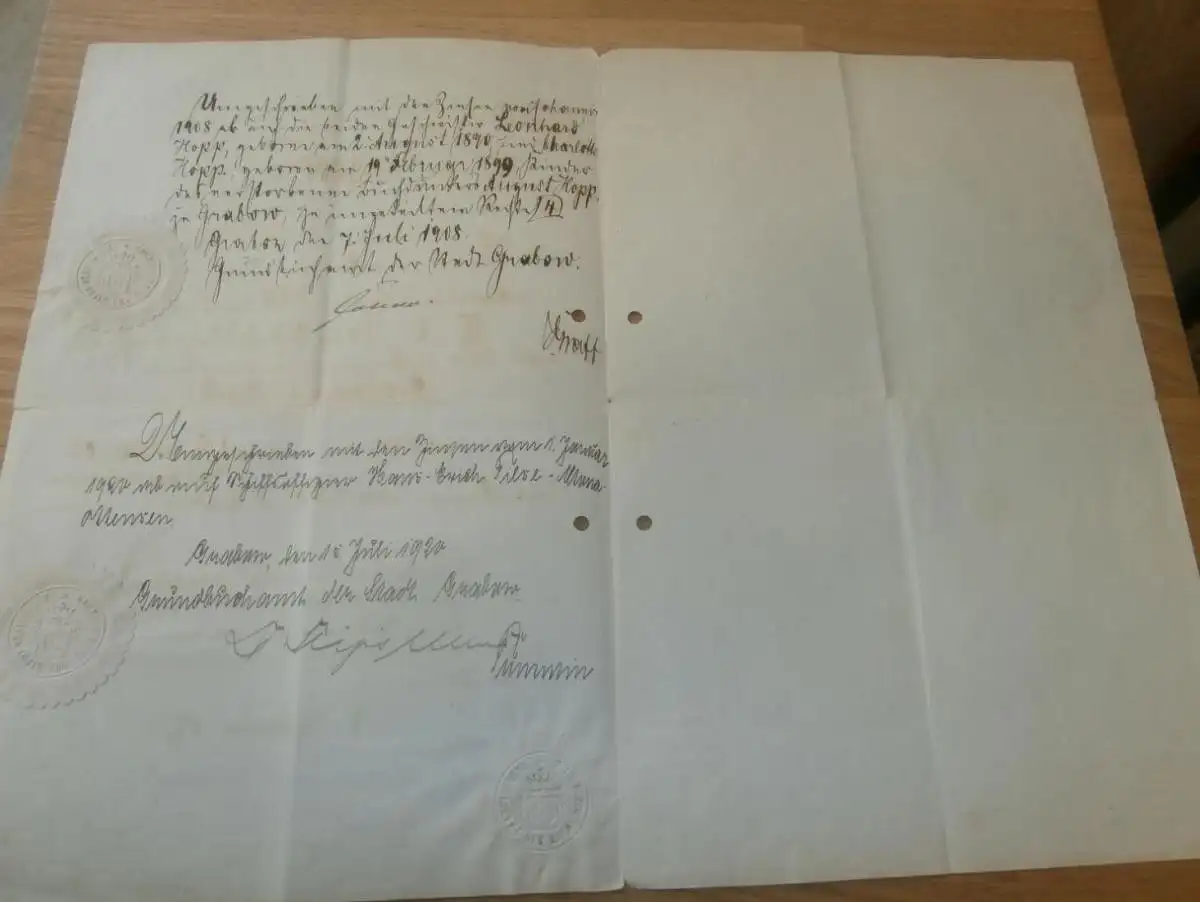 Umgeschrieben mit den Zinsen von Johannis
1908 ab auf die beiden Geschwister Leonhard
Kopp, geboren am 2. August 1890, und Charlotte
Kopp, geboren am 19. Februar 1899, Kinder
des verstorbenen Buchdruckers August Kopp
zu Grabow, zu ungeteiltem Rechte
Grabow, den 7. Juli 1908.
Grundbuchamt der Stadt Grabow.
Umgeschrieben mit den Zinsen vom 1. Januar
1920 ab auf Schiffsoffizier Hans-Erich Altona-
Ottensen
Grabow, den Juli 1920
Grundbuchamt der Stadt Grabow.